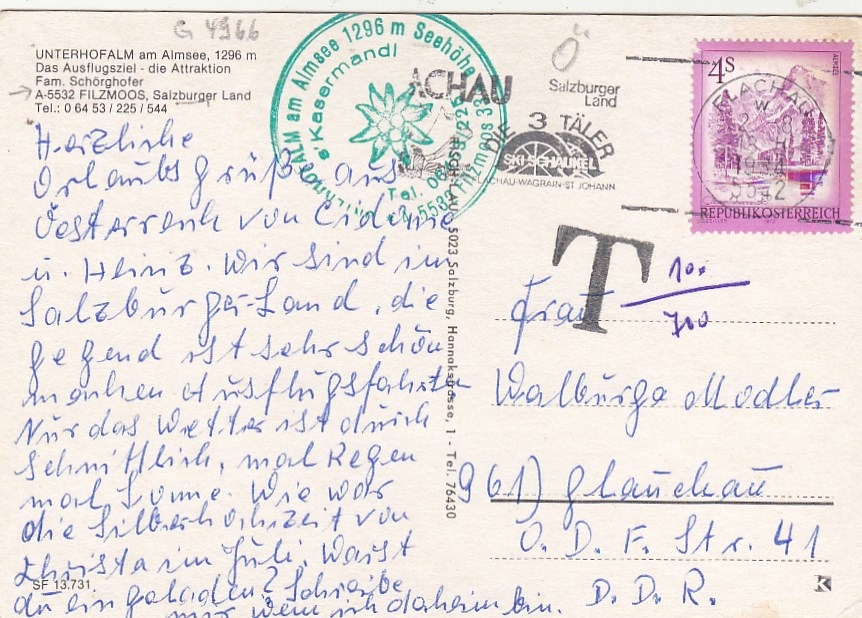 G 4966
UNTERHOFALM am Almsee, 1296 m
Das Ausflugsziel - die Attraktion
Fam. Schörghofer
A-5532 FILZMOOS, Salzburger Land
Tel.: 0 64 53 / 225 / 544
UNTERHOFALM am Almsee 1296 m Seehöhe
s'Kasermandl
Tel. 06453/225
A-5532 Filzmoos
ACHAU
Ö
Salzburger
Land
DIE 3 TÄLER
SKI-SCHAUKEL
ACHAU-WAGRAIN-ST JOHANN
4S
ALMSEE
REPUBLIK ÖSTERREICH
FLACHAU
5542
T
10.
700
Herzliche
Urlaubsgrüße aus
Oesterreich von
u. Heinz. Wir sind im
Salzburger-Land, die
gegend ist sehr schön
machen Ausflugsfahrten
Nur das Wetter ist durch
schnittlich, mal Regen
mal Sonne. Wie war
die Silberhochzeit von
Christa im Juli, warst
du eingeladen? Schreibe
mir wenn ich daheim bin.
5023 Salzburg, Hannakstrasse, 1 - Tel. 76430
Frau
Walburga Modler
961) Glauchau
O. D. F. Str. 41
D. D. R.
SF 13.731
K